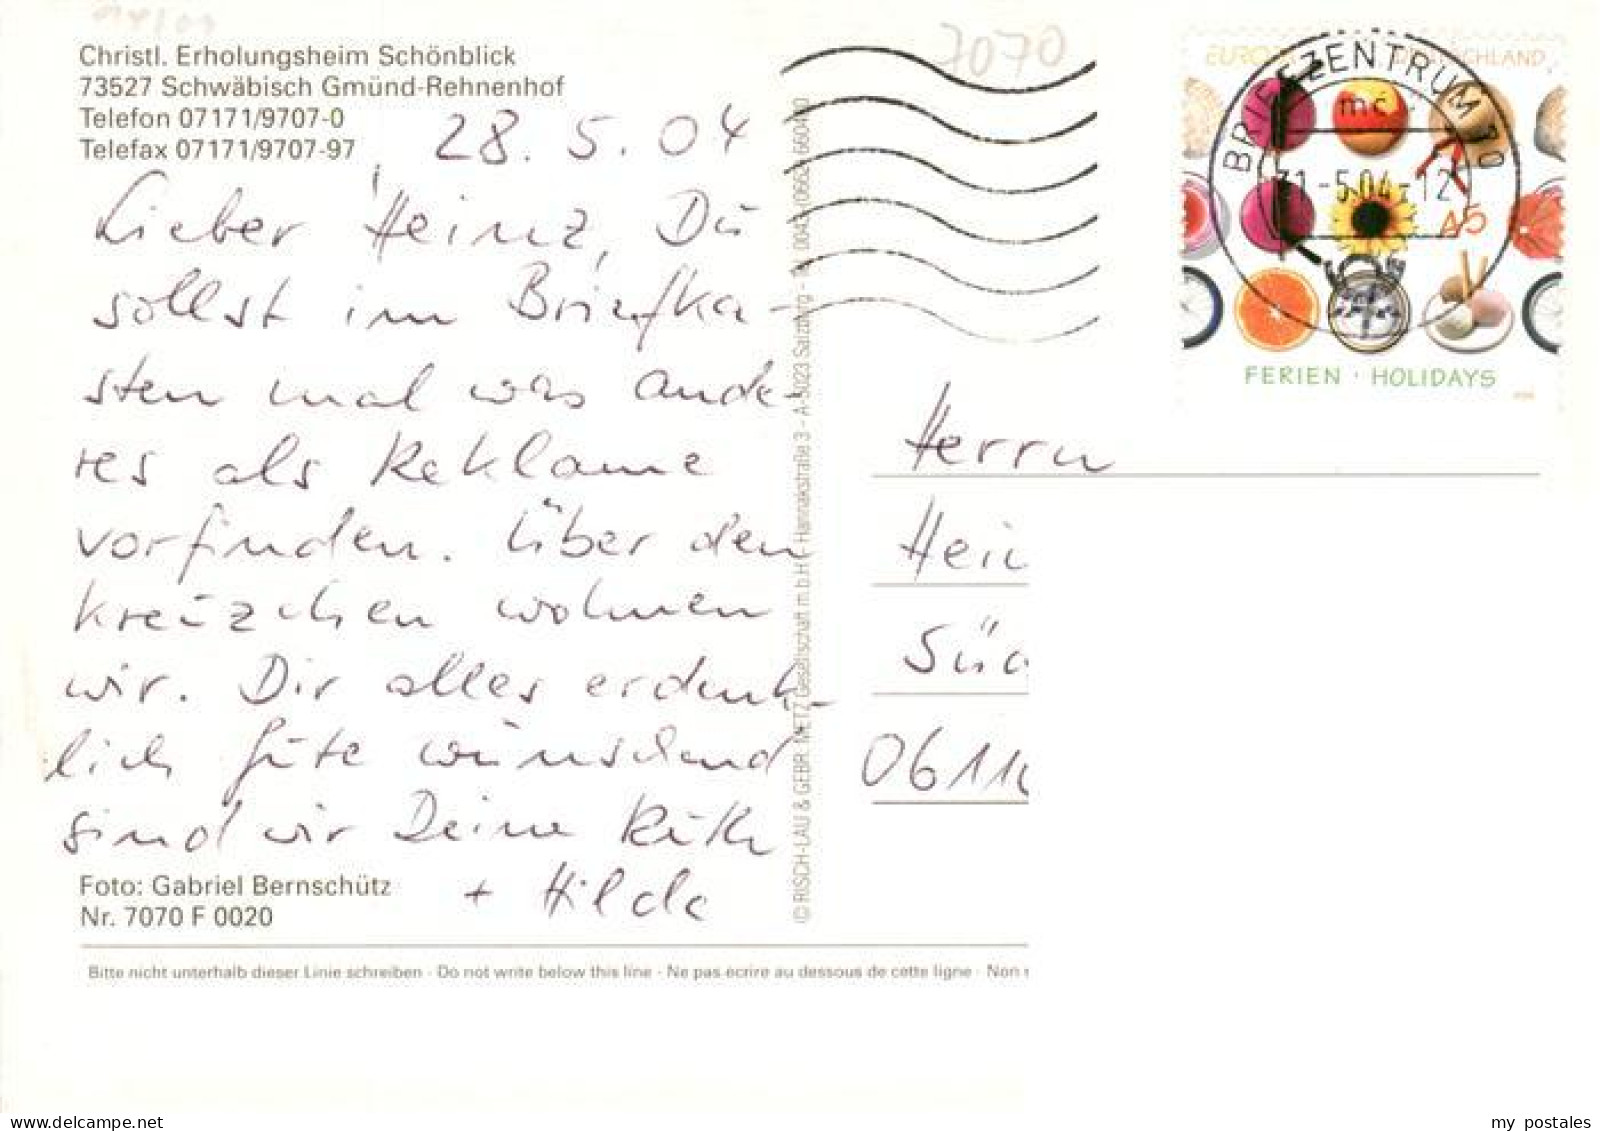 Christl. Erholungsheim Schönblick
73527 Schwäbisch Gmünd-Rehnenhof
Telefon 07171/9707-0
Telefax 07171/9707-97
28.5.04
Lieber Heinz, Du
sollst im Briefka-
sten mal was ande-
res als Reklame
vorfinden. Über den
Kreuzchen wohnen
wir. Dir alles erdenk-
lich Gute wünschend
sind wir Deine Ruth
+ Hilde
Foto: Gabriel Bernschütz
Nr. 7070 F 0020
Bitte nicht unterhalb dieser Linie schreiben - Do not write below this line - Ne pas écrire au dessous de cette ligne - Non
© RISCH-LAU & GEBR. METZ Gesellschaft m.b.H. - Hannakstraße 3 - A-5023 Salzburg
7070
EUROPA DEUTSCHLAND
BRIEFZENTRUM
mc
31-5.04-12
45
FERIEN · HOLIDAYS
Herrn
Hei
Süd
0611
www.delcampe.net
my_postales